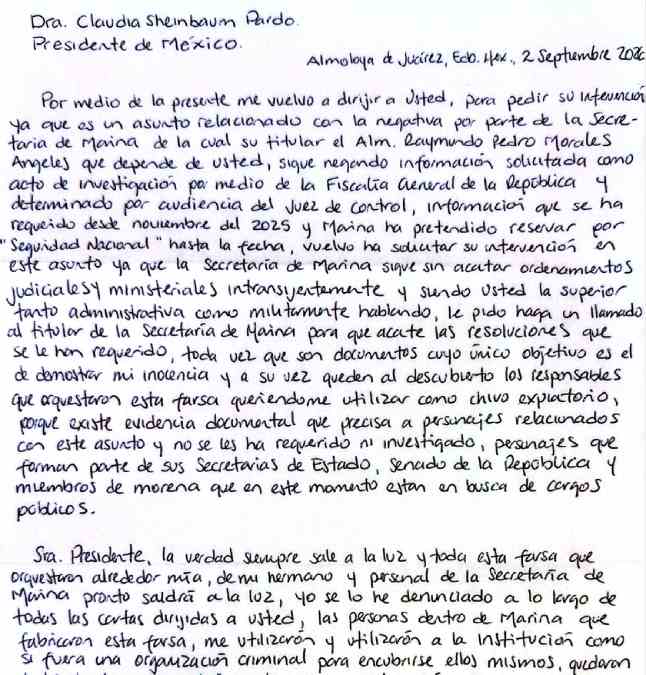 Dra. Claudia Sheinbaum Pardo.
Presidente de México.
Almoloya de Juárez, Edo. Mex., 2 Septiembre 2026
Por medio de la presente me vuelvo a dirijir a Usted, para pedir su intervención
ya que es un asunto relacionado con la negativa por parte de la Secre-
taria de Marina de la cual su titular el Alm. Raymundo Pedro Morales
Angeles que depende de usted, sigue negando información solicitada como
acto de investigación por medio de la Fiscalía General de la República y
determinado por audiencia del Juez de control, información que se ha
requerido desde noviembre del 2025 y Marina ha pretendido reservar por
"Seguridad Nacional" hasta la fecha, vuelvo ha solicitar su intervención en
este asunto ya que la Secretaría de Marina sigue sin acatar ordenamientos
judiciales y ministeriales intransijentemente y siendo Usted la superior
tanto administrativa como militarmente hablando, le pido haga un llamado
al titular de la Secretaría de Marina para que acate las resoluciones que
se le han requerido, toda vez que son documentos cuyo único objetivo es el
de demostrar mi inocencia y a su vez queden al descubierto los responsables
que orquestaron esta farsa queriendome utilizar como chivo expiatorio,
porque existe evidencia documental que precisa a personajes relacionados
con este asunto y no se les ha requerido ni investigado, personajes que
forman parte de sus Secretarias de Estado, Senado de la República y
miembros de morena que en este momento estan en busca de cargos
públicos.
Sra. Presidente, la verdad siempre sale a la luz y toda esta farsa que
orquestaron alrededor mía, de mi hermano y personal de la Secretaría de
Marina pronto saldrá a la luz, yo se lo he denunciado a lo largo de
todas las cartas dirijidas a usted, las personas dentro de Marina que
fabricaron esta farsa, me utilizarón y utilizarón a la Institución como
si fuera una organización criminal para encubrirse ellos mismos, quedaron